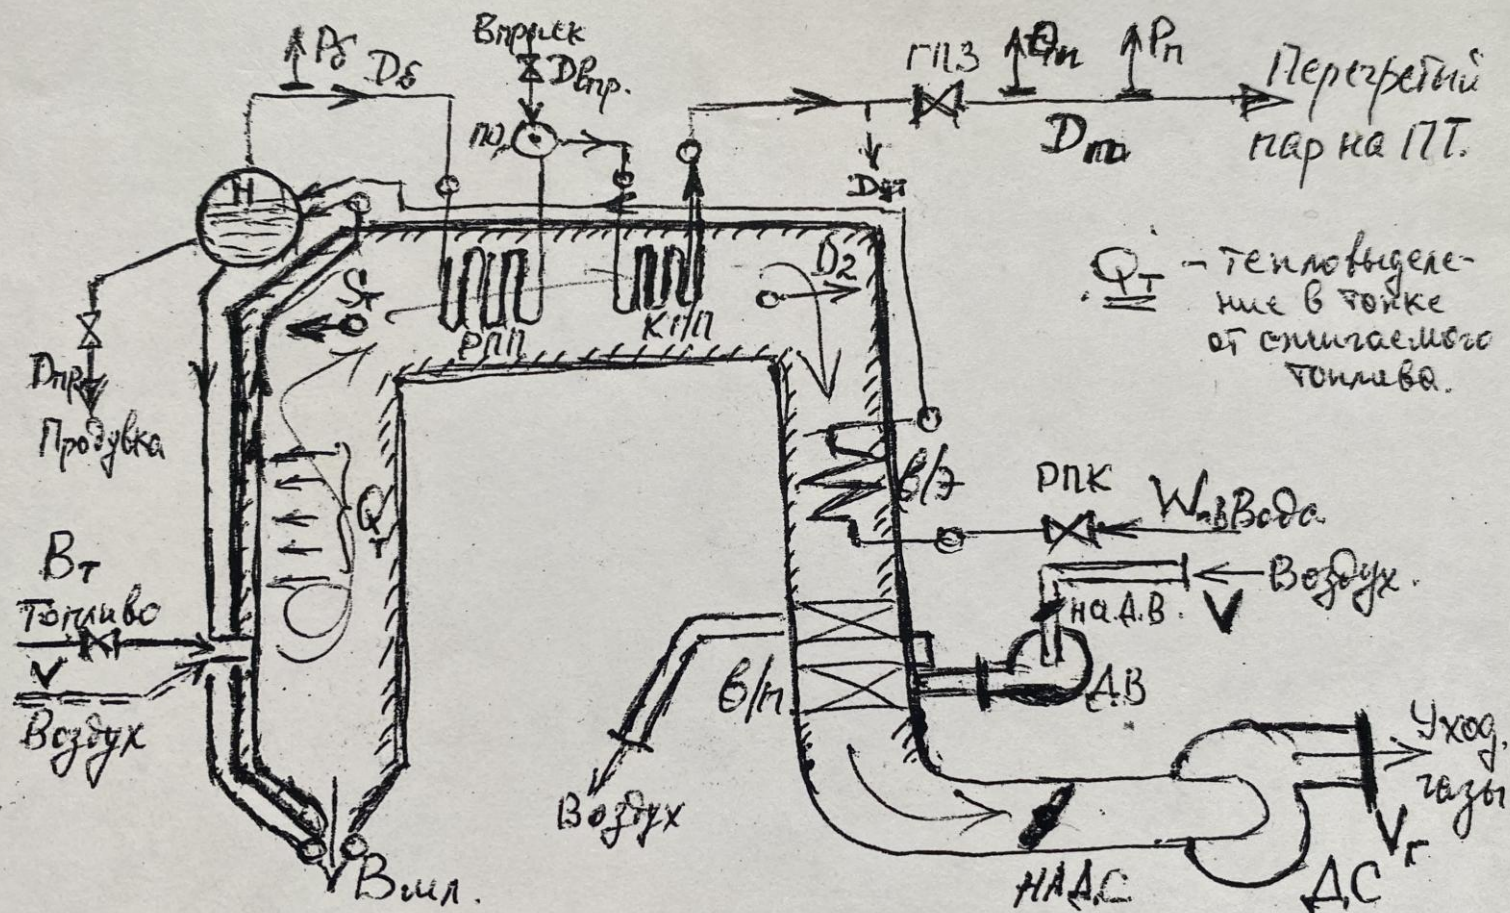 Pб
Dб
Впрыск
Dвпр.
ПО
ГПЗ
Pп
Dпп
Перегретый
пар на ПТ.
Н
РПП
КПП
Sт
O2
Qт - тепловыделе-
ние в топке
от сжигаемого
топлива.
Dпр
Продувка
Qт
в/э
РПК
Wпв Вода
Воздух.
V
на Д.В.
Д.В
Вт
топливо
V
Воздух
в/п
Воздух
Вшл.
НА ДС
ДС
Уход.
газы
Vг